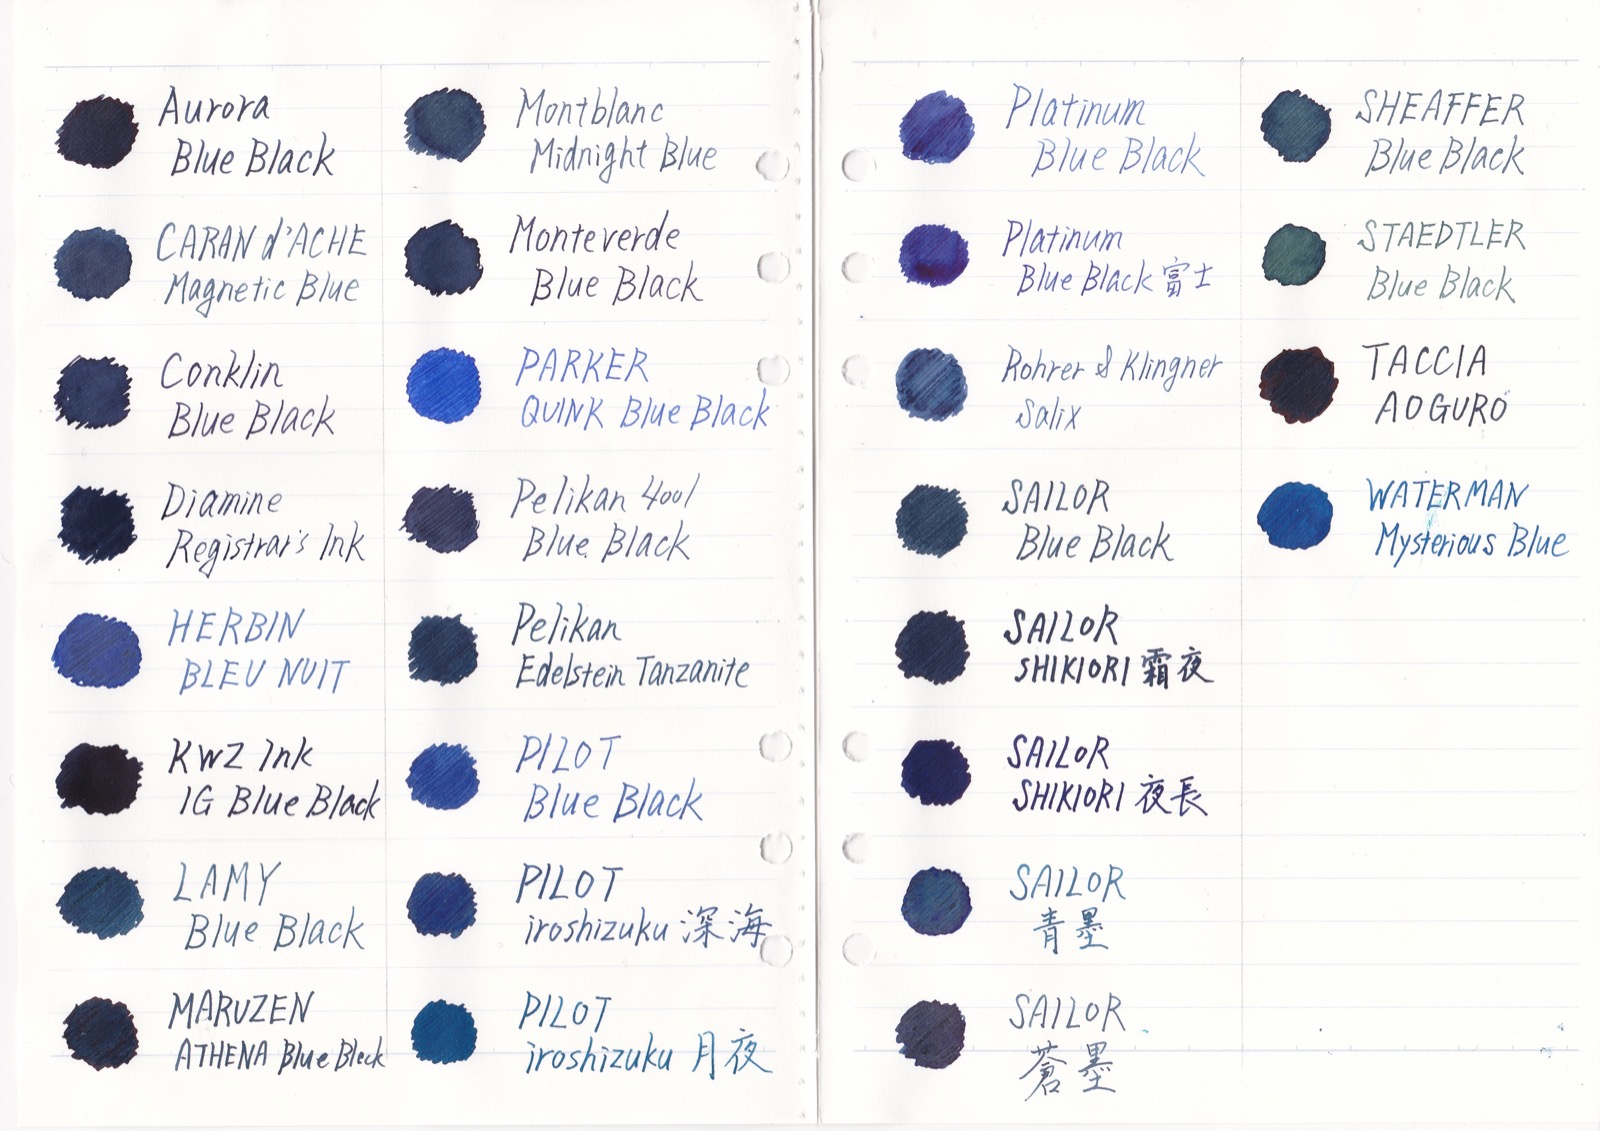 Aurora
Blue Black
CARAN d'ACHE
Magnetic Blue
Conklin
Blue Black
Diamine
Registrar's Ink
HERBIN
BLEU NUIT
KWZ Ink
IG Blue Black
LAMY
Blue Black
MARUZEN
ATHENA Blue Black
Montblanc
Midnight Blue
Monteverde
Blue Black
PARKER
QUINK Blue Black
Pelikan 4001
Blue Black
Pelikan
Edelstein Tanzanite
PILOT
Blue Black
PILOT
iroshizuku 深海
PILOT
iroshizuku 月夜
Platinum
Blue Black
Platinum
Blue Black 富士
Rohrer & Klingner
Salix
SAILOR
Blue Black
SAILOR
SHIKIORI 霜夜
SAILOR
SHIKIORI 夜長
SAILOR
青墨
SAILOR
蒼墨
SHEAFFER
Blue Black
STAEDTLER
Blue Black
TACCIA
AOGURO
WATERMAN
Mysterious Blue